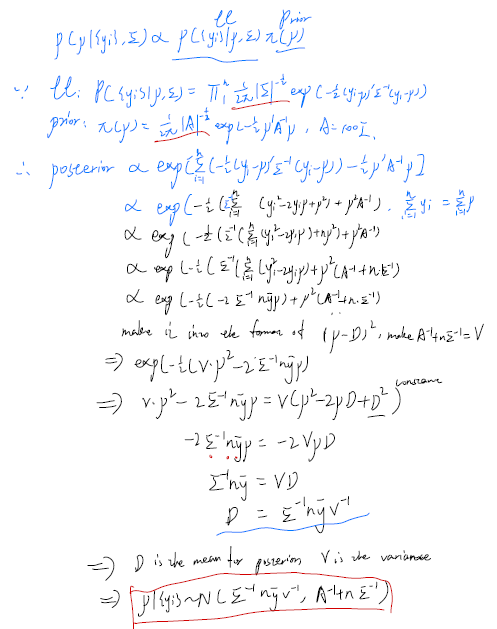 ll Prior
p(μ|{yi},Σ) ∝ p({yi}|μ,Σ) π(μ)
∵ ll: P({yi}|μ,Σ) = Π₁ⁿ 1/2π |Σ|^-½ exp(-½(yi-μ)'Σ⁻¹(yi-μ))
prior: π(μ) = 1/2π |A|^-½ exp(-½μ'A⁻¹μ, A=100I.
∴ posterior ∝ exp[Σᵢ₌₁ⁿ(-½(yi-μ)'Σ⁻¹(yi-μ))-½μ'A⁻¹μ]
∝ exp(-½(Σ⁻¹Σᵢ₌₁ⁿ (yi²-2yiμ+μ²)+μ²A⁻¹). Σᵢ₌₁ⁿ yi = Σᵢ₌₁ⁿ μ
∝ exp(-½(Σ⁻¹(Σᵢ₌₁ⁿ(yi²-2yiμ)+nμ²)+μ²A⁻¹)
∝ exp(-½(Σ⁻¹(Σᵢ₌₁ⁿ(yi²-2yiμ)+μ²(A⁻¹+n·Σ⁻¹)
∝ exp(-½(-2Σ⁻¹nȳμ)+μ²(A⁻¹+n·Σ⁻¹)
make it into the format of (μ-D)², make A⁻¹+nΣ⁻¹=V
⇒ exp(-½(V·μ²-2·Σ⁻¹nȳμ)
⇒ V·μ²-2Σ⁻¹nȳμ = V(μ²-2μD+D²) constant
-2Σ⁻¹nȳμ = -2VμD
Σ⁻¹nȳ = VD
D = Σ⁻¹nȳV⁻¹
⇒ D is the mean for posterior V is the variance
⇒ μ|{yi}~N(Σ⁻¹nȳV⁻¹, A⁻¹+nΣ⁻¹)